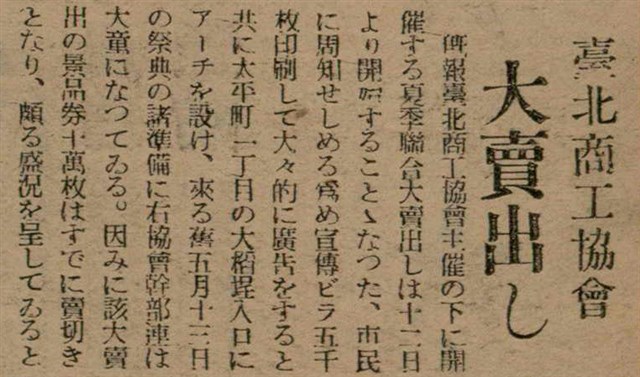 臺北商工協會
大賣出し
既報臺北商工協會主催の下に開
催する夏季聯合大賣出しは十二日
より開始することゝなつた、市民
に周知せしめる爲め宣傳ビラ五千
枚印刷して大々的に廣告をすると
共に太平町一丁目の大稻埕入口に
アーチを設け、來る舊五月十三日
の祭典の諸準備に右協會幹部連は
大童になつてゐる。因みに該大賣
出の景品劵十萬枚はすでに賣切き
となり、頗る盛況を呈してゐると